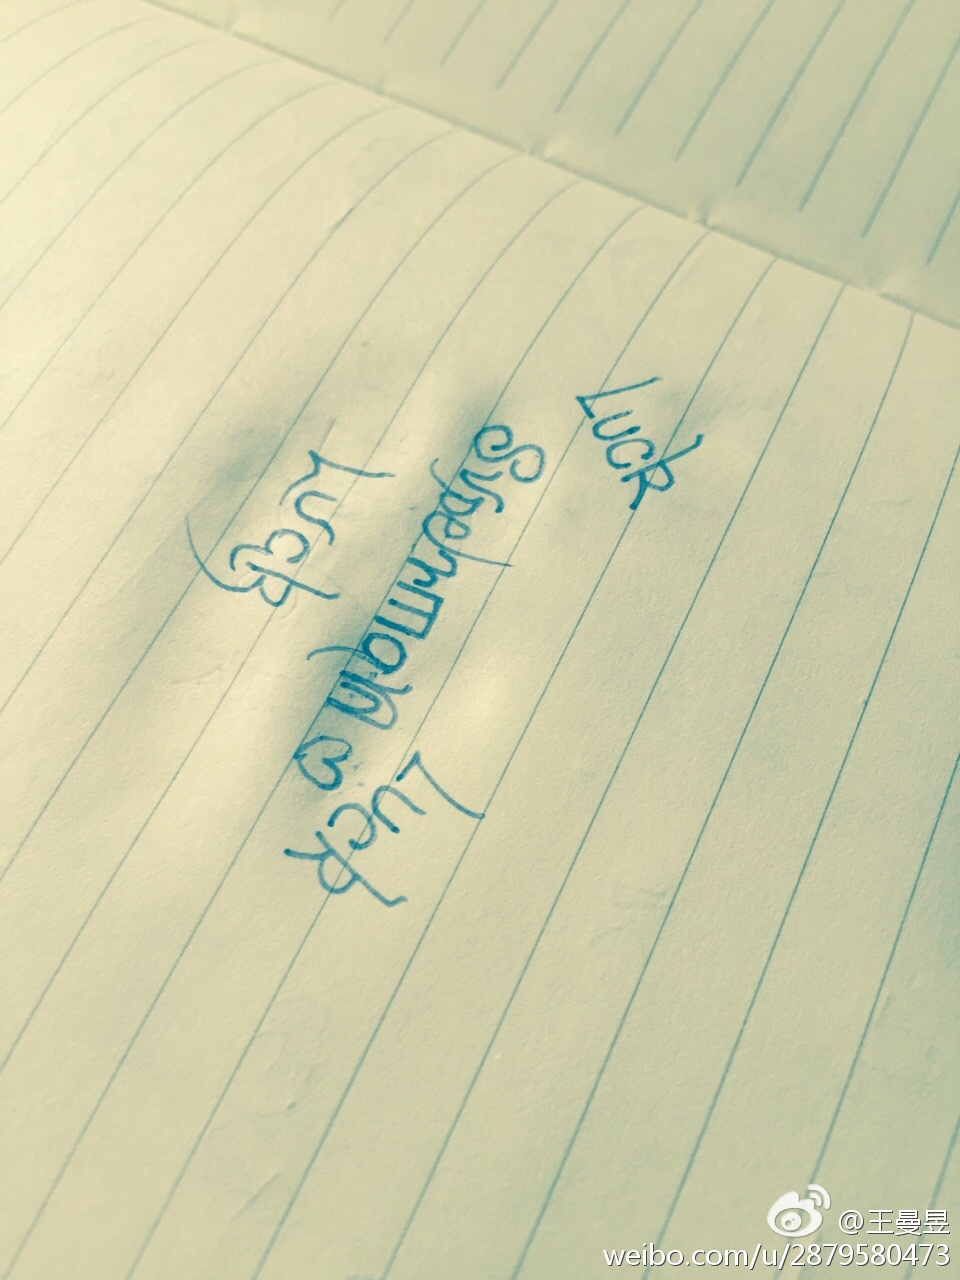 Luck
Superman
Luck
Luck
@王曼昱
weibo.com/u/2879580473